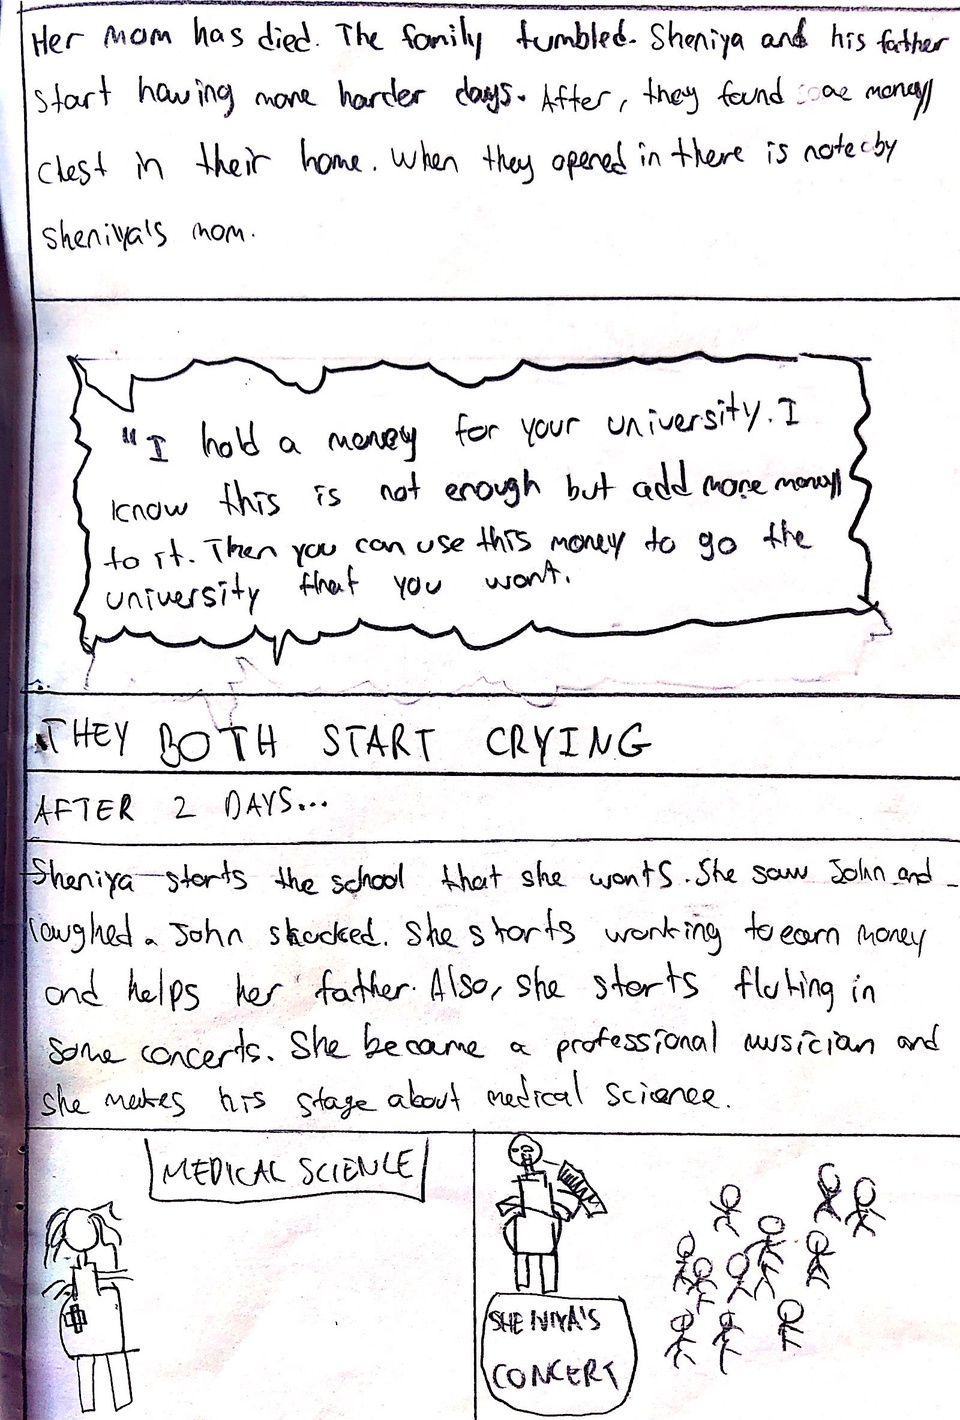 Her mom has died. The family tumbled. Sheniya and his father
start having more harder days. After, they found some money
chest in their home. When they opened in there is note by
Sheniya's mom.
"I hold a money for your university. I
know this is not enough but add more money
to it. Then you can use this money to go the
university that you want.
THEY BOTH START CRYING
AFTER 2 DAYS...
Sheniya starts the school that she wants. She saw John and
laughed. John shocked. She starts working to earn money
and helps her father. Also, she starts fluting in
some concerts. She became a professional musician and
she makes his stage about medical science.
MEDICAL SCIENCE
SHENIYA'S
CONCERT